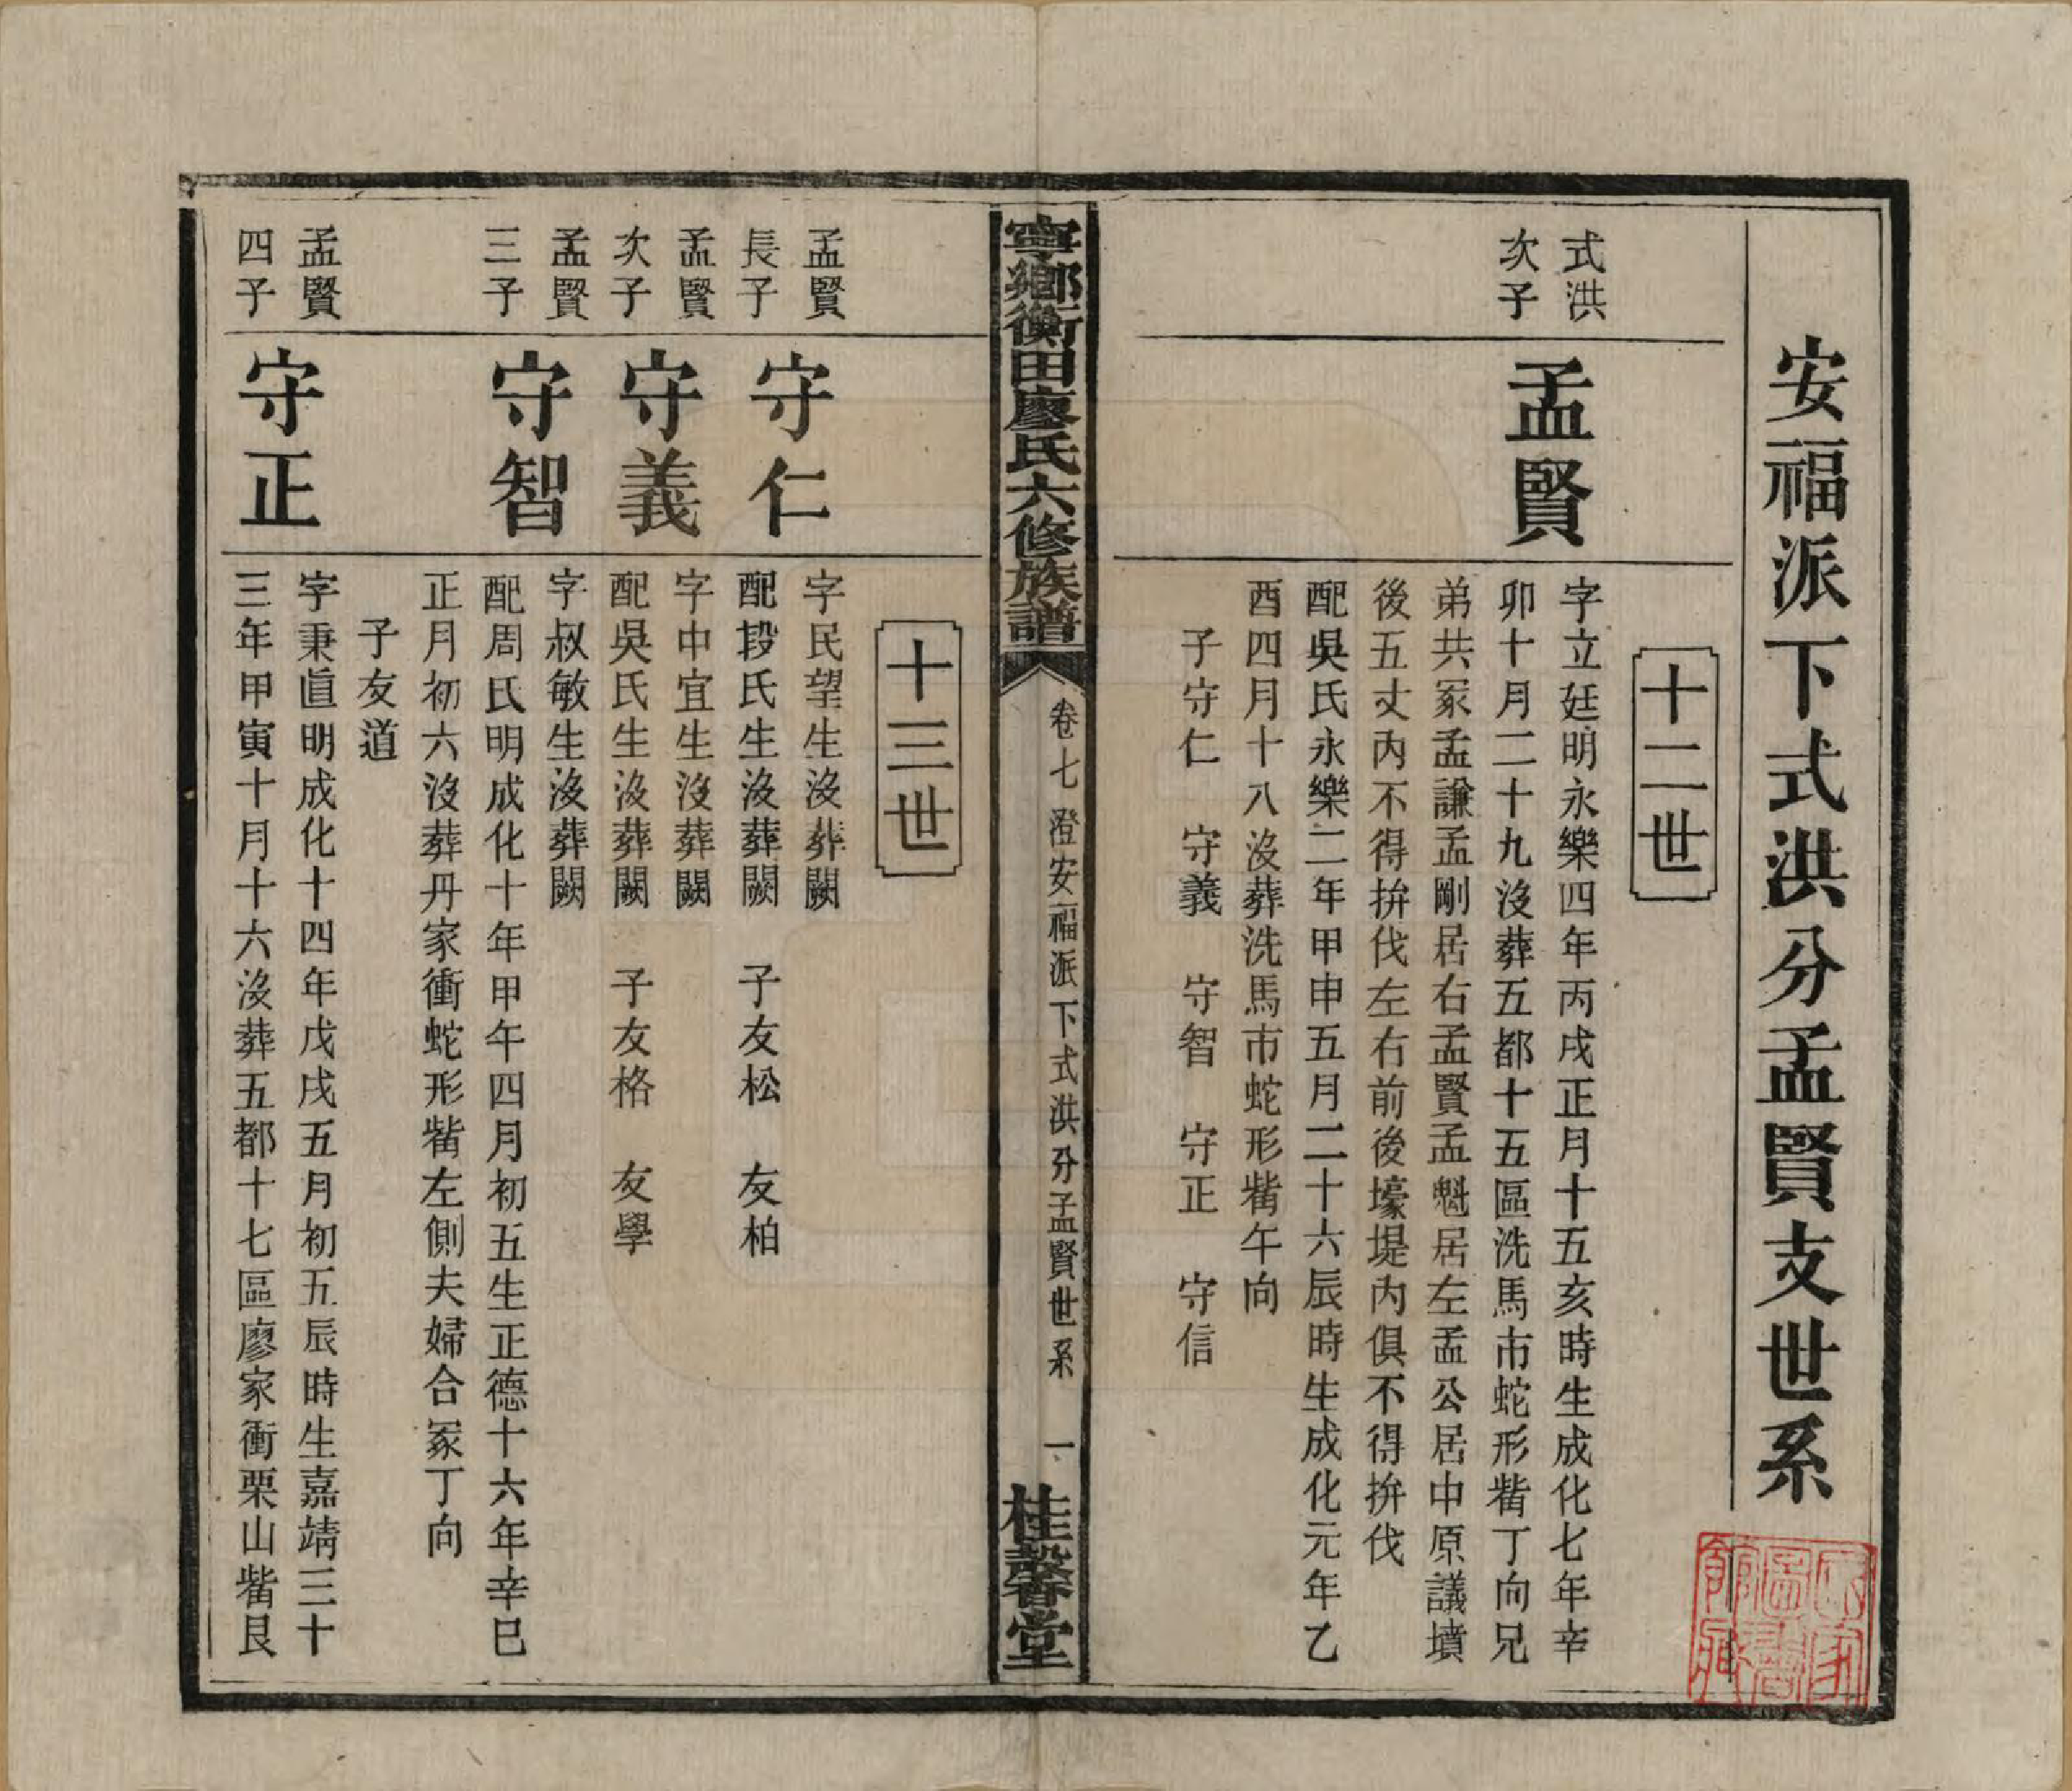 安福派下式洪分孟賢支世系
十二世
式洪
次子
孟賢
字立廷明永樂四年丙戌正月十五亥時生成化七年辛
卯十月二十九沒葬五都十五區洗馬市蛇形觜丁向兄
弟共冢孟謙孟剛居右孟賢孟魁居左孟公居中原議墳
後五丈內不得拚伐左右前後壕堤內俱不得拚伐
配吳氏永樂二年甲申五月二十六辰時生成化元年乙
酉四月十八沒葬洗馬市蛇形觜午向
子守仁 守義 守智 守正 守信
寧鄉衡田廖氏六修族譜
卷七 澄安福派下式洪分孟賢世系
一
桂馨堂
十三世
孟賢
長子
守仁
字民望生沒葬闕
配段氏生沒葬闕 子友松 友柏
孟賢
次子
守義
字中宜生沒葬闕
配吳氏生沒葬闕 子友格 友學
孟賢
三子
守智
字叔敏生沒葬闕
配周氏明成化十年甲午四月初五生正德十六年辛巳
正月初六沒葬丹家衝蛇形觜左側夫婦合冢丁向
子友道
孟賢
四子
守正
字秉眞明成化十四年戊戌五月初五辰時生嘉靖三十
三年甲寅十月十六沒葬五都十七區廖家衝栗山觜艮